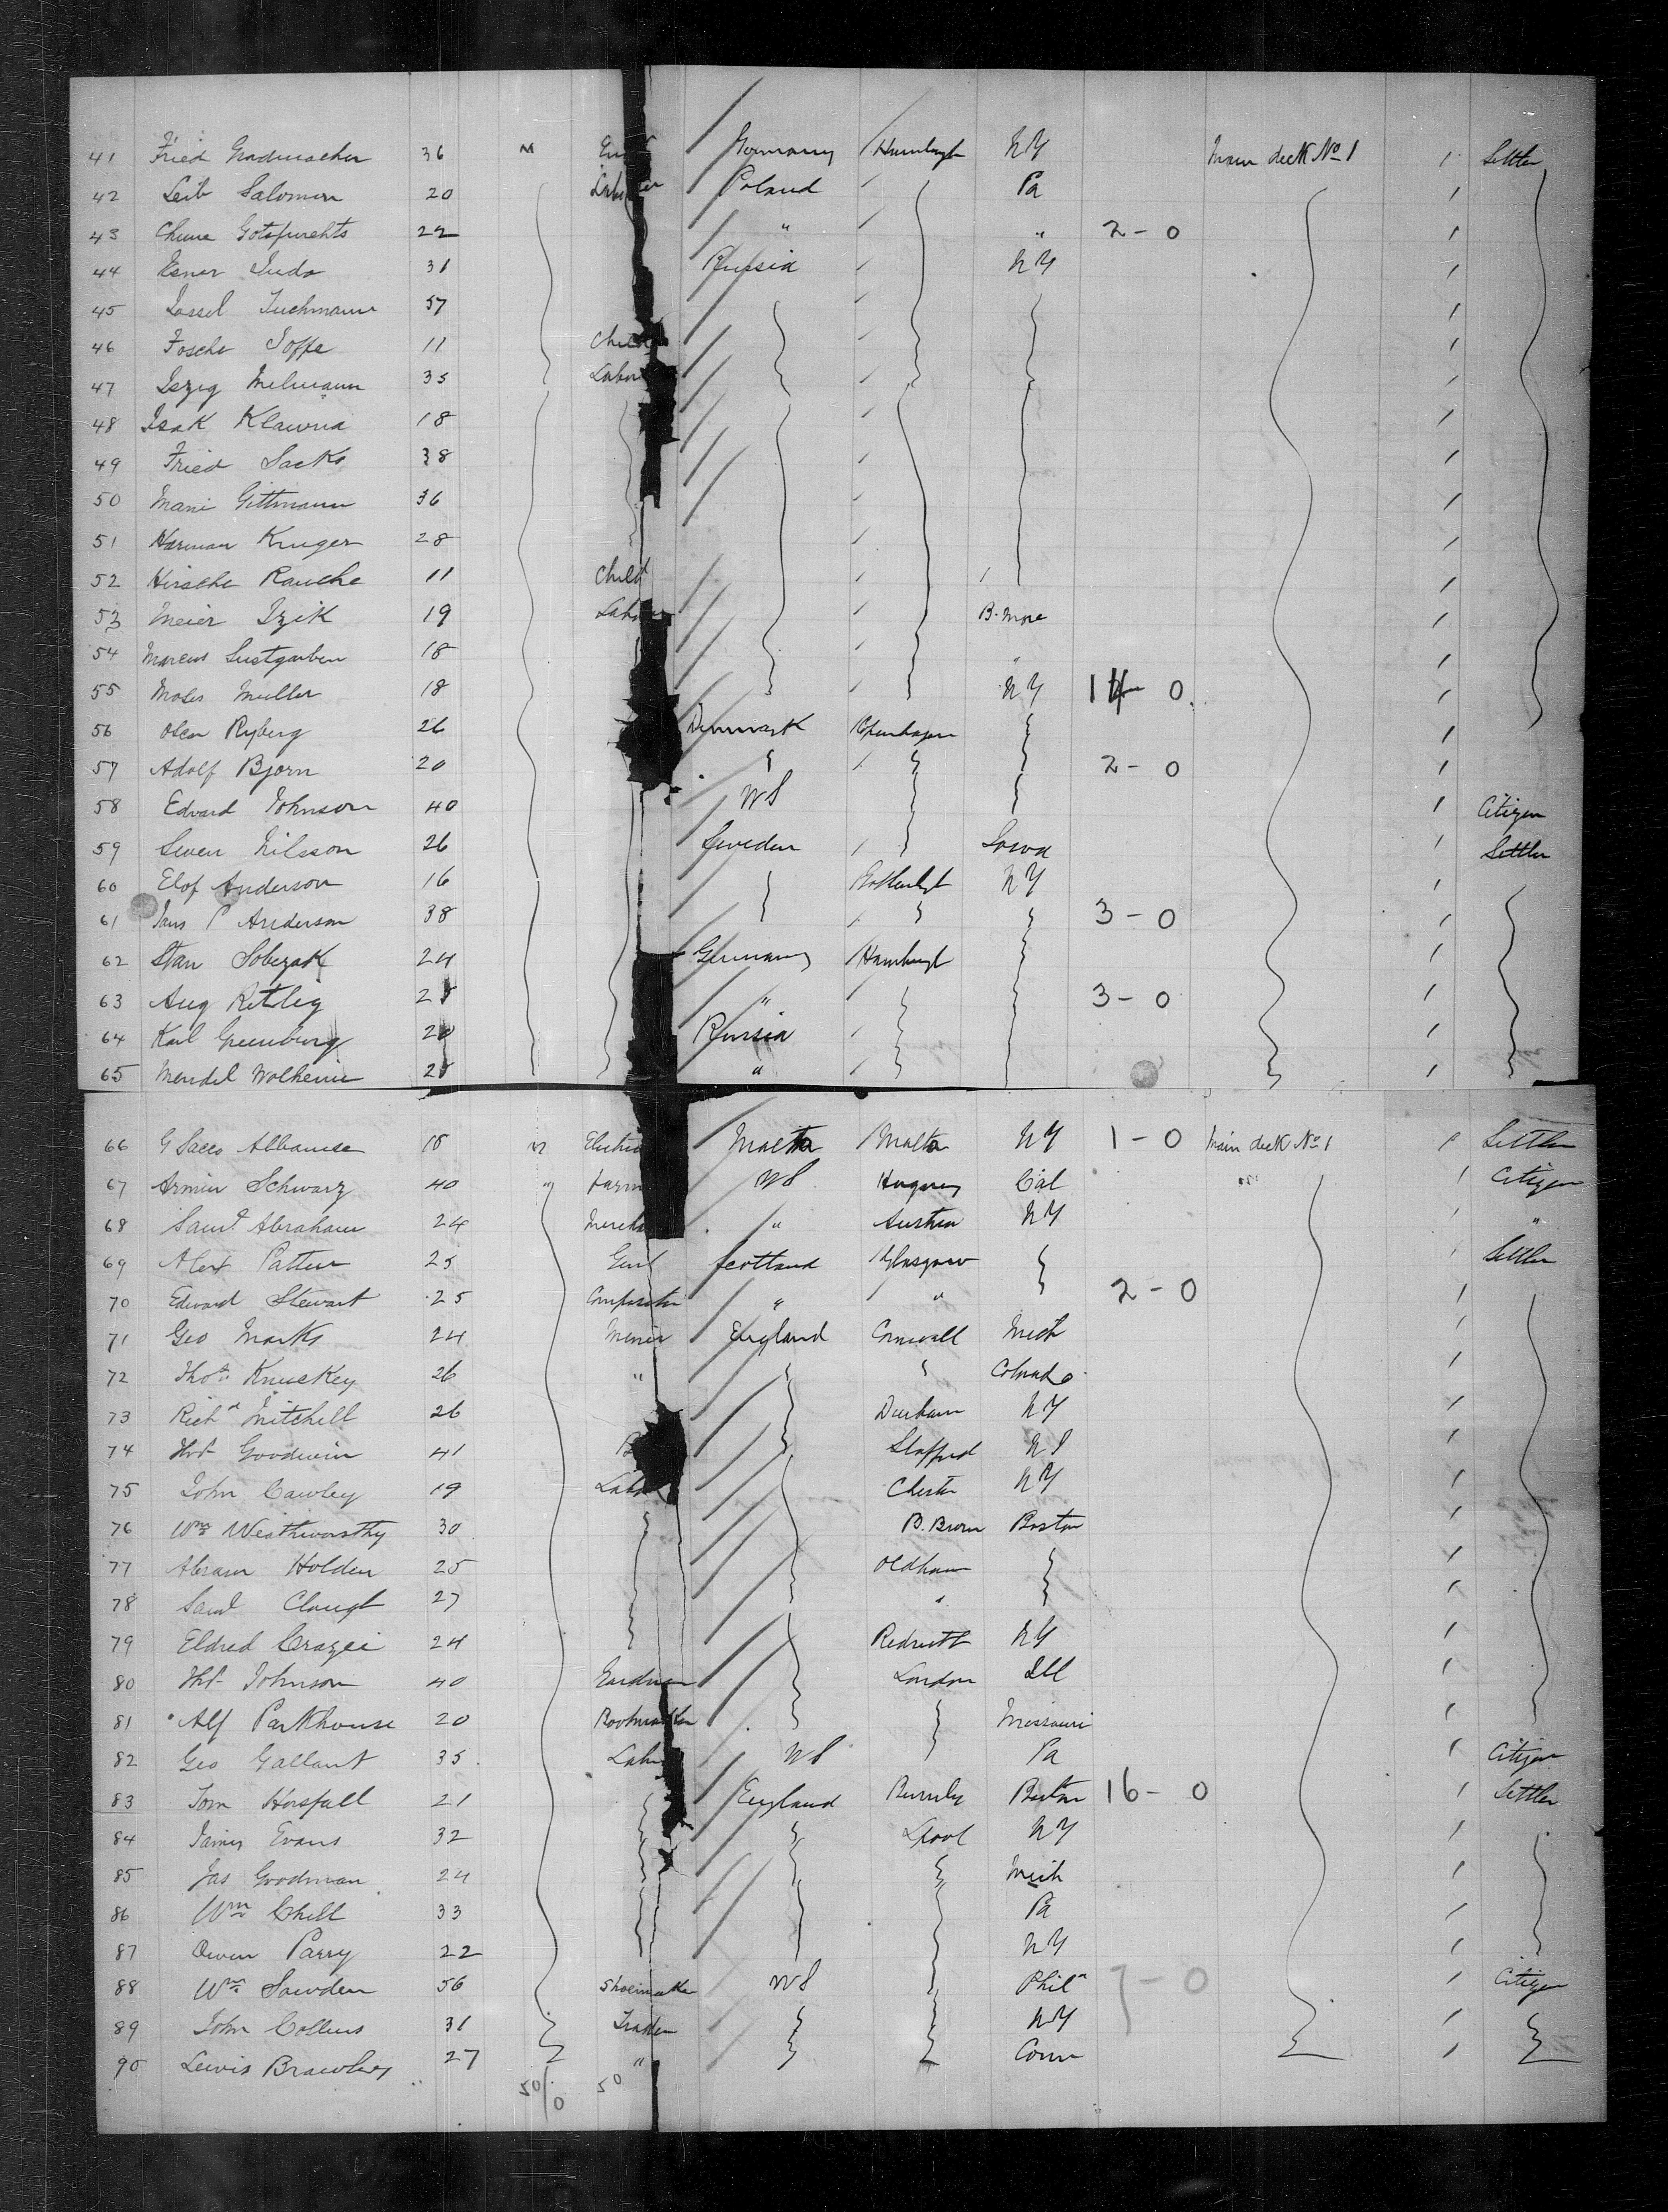 41 Fried Gradmacher 36 M Germany Hamburgh NY Main deck No 1 Settler
42 Leib Salomon 20 Labourer Poland Pa
43 Chune 22 " " 2 - 0
44 Esner Juda 31 Russia NY
45 Jossel Tuchmann 57
46 Fosche Joffe 11 Child
47 Iszig Milmann 35 Labour
48 Isak Klawna 18
49 Fried Sacks 38
50 Mani Gittmann 36
51 Harman Kruger 28
52 Hirsche Rauche 11 Child
53 Meier Izik 19 Labour B. more
54 Marcus Lustgarten 18 "
55 Moses Muller 18 NY 14 - 0
56 Olen Ryberg 26 Denmark Copenhagen
57 Adolf Bjorn 20 2 - 0
58 Edward Johnson 40 US Citizen
59 Swen Nilsson 26 Sweden Iowa Settler
60 Elof Anderson 16 NY
61 Jans P Anderson 38 3 - 0
62 Stan Sobezak 24 Germany Hamburgh
63 Aug Retlig " 3 - 0
64 Karl Greenburg Russia
65 Mendel Wolheim "
66 G Sacco Albanese 18 M Electric Malta Malta NY 1 - 0 Main deck No 1 Settler
67 Armin Schwarz 40 " Farm US Hugary Cal Citizen
68 Saml Abraham 24 Mercha " Austria NY "
69 Alex Patten 25 Scotland Glasgow Settler
70 Edward Stewart 25 Compositor " " 2 - 0
71 Geo Marks 24 Miner England Cornwall Mich
72 Thos Knuckey 26 " Colorado
73 Richd Mitchell 26 Durham NY
74 Hbt Goodwin 41 Stafford NJ
75 John Cawley 19 Labo Chester NY
76 Wm Westhworthy 30 Boston
77 Abram Holden 25 Oldham
78 Saml Clough 27 "
79 Eldred Crazei 24 Redruth NY
80 Hbt Johnson 40 London Ill
81 Alf Parkhouse 20 Bootmaker Missouri
82 Geo Gallant 35 Labr US Pa Citizen
83 Tom Horsfall 21 England Burnly Boston 16 - 0 Settler
84 James Evans 32 Lpool NY
85 Jas Goodman 24 Mich
86 Wm Chell 33 Pa
87 Owen Parry 22 NY
88 Wm Sowden 56 Shoemaker US Phila 7 - 0 Citizen
89 John Collins 31 Trader NY
90 Lewis Brawley 27 " Conn
50/0 50